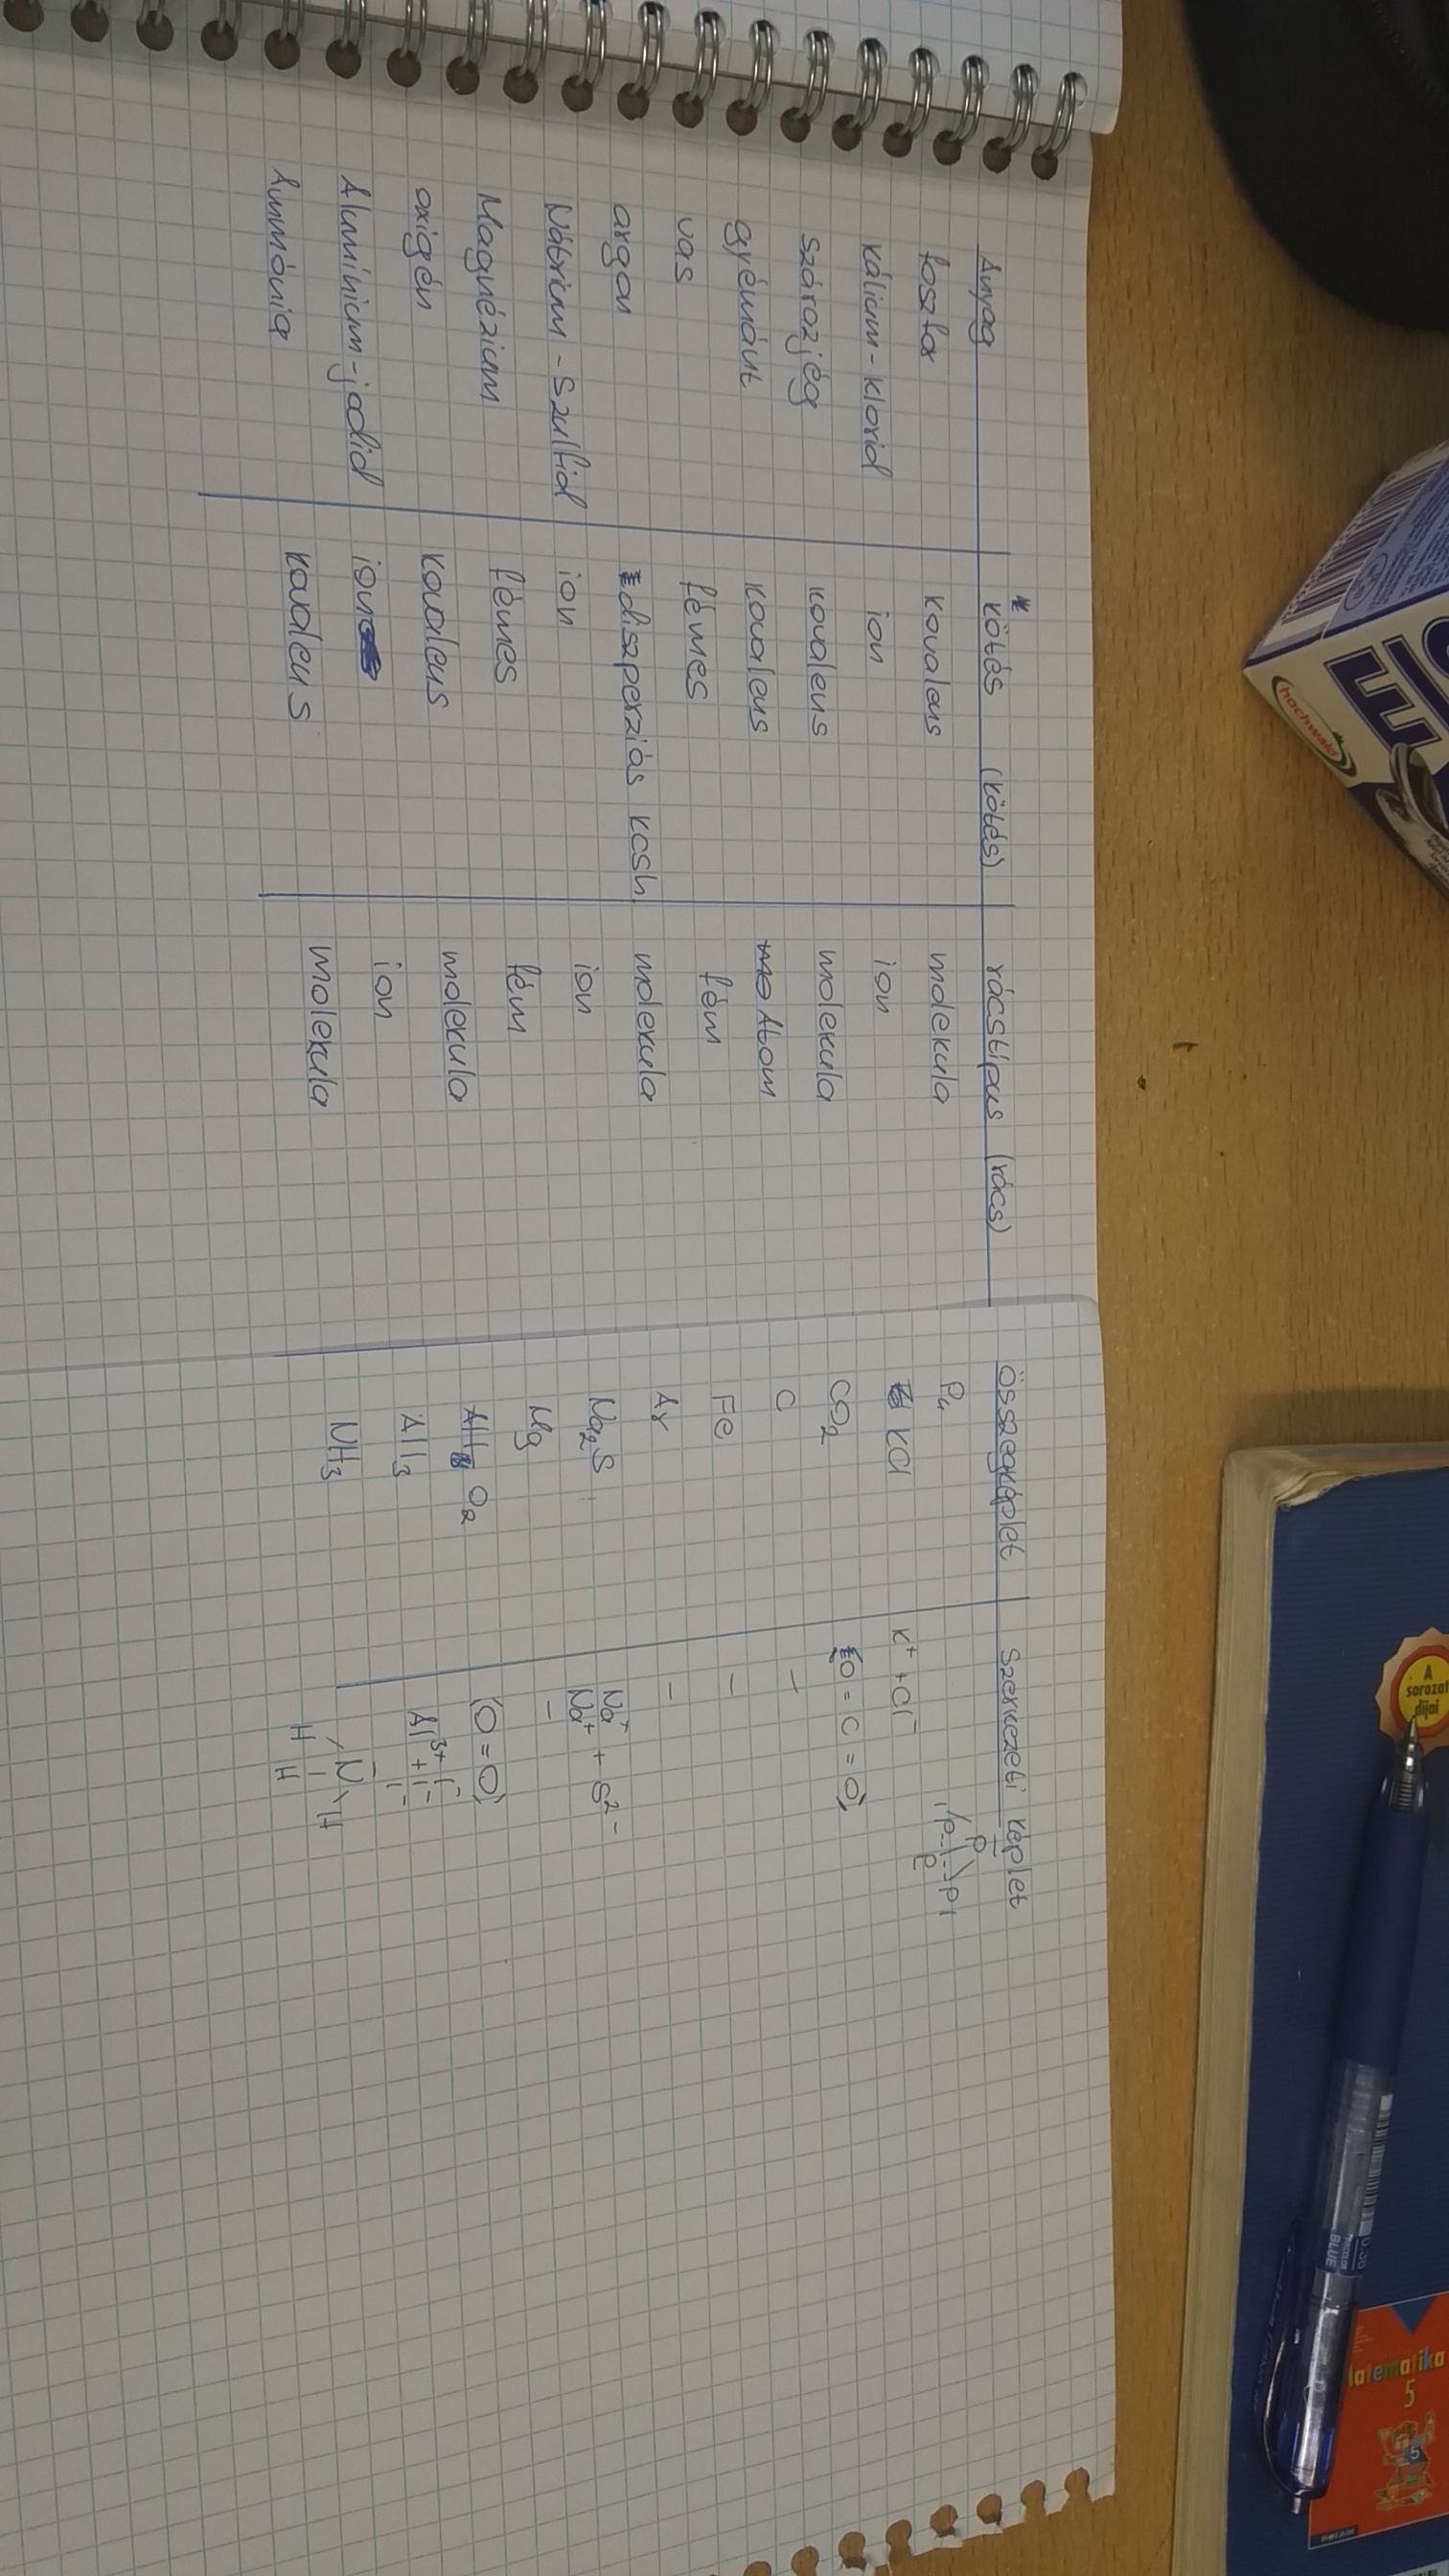 Anyag kötés (kötés) rácstípus (rács) Összegképlet Szerkezeti képlet
foszfor kovalens molekula P₄
kálium-klorid ion ion KCl K⁺ + Cl⁻
szárazjég kovalens molekula CO₂ O = C = O
gyémánt kovalens Atom C –
vas fémes fém Fe –
argon diszperziós kcsh. molekula Ar –
Nátrium-szulfid ion ion Na₂S Na⁺ Na⁺ + S²⁻
Magnézium fémes fém Mg –
oxigén kovalens molekula O₂ O = O
Alumínium-jodid ion ion AlI₃ Al³⁺ + I⁻ I⁻ I⁻
Ammónia kovalens molekula NH₃
P
P P
P
N
H H H
hochwald
A
sorozat
díjai
BLUE
Matematika
5
5
MOZAIK